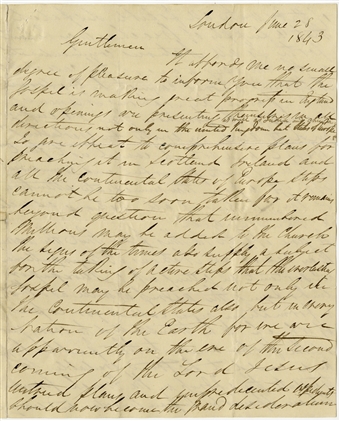 London June 28
1843
Gentlemen
It affords me no small
degree of pleasure to inform you that the
Gospel is making great progress in England
and openings are presenting themselves in all
directions not only in the united Kingdom but States of Europe
to give effect to comprehensive plans for
preaching it in Scotland Ireland and
all the Continental States of Europe steps
cannot be too soon taken for it remains
beyond question that unnumbered
thousands may be added to the Church
the signs of the times also supply a subject
for the taking of active steps that the everlasting
Gospel may be preached not only in
the Continental States also but in every
Nation of the Earth for we are
apparently on the eve of the Second
coming of the Lord Jesus
united plans and unprecedented
should now become the grand desideratum